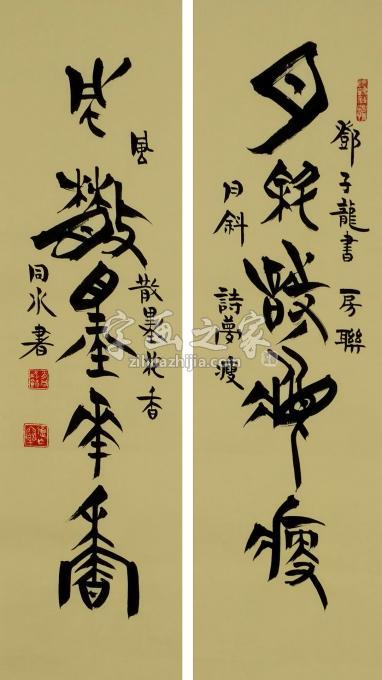 月斜詩夢瘦
鄧子龍書房聯
月斜詩夢瘦
風散墨花香
風散墨花香
同冰書
字画之家
zihuazhijia.com